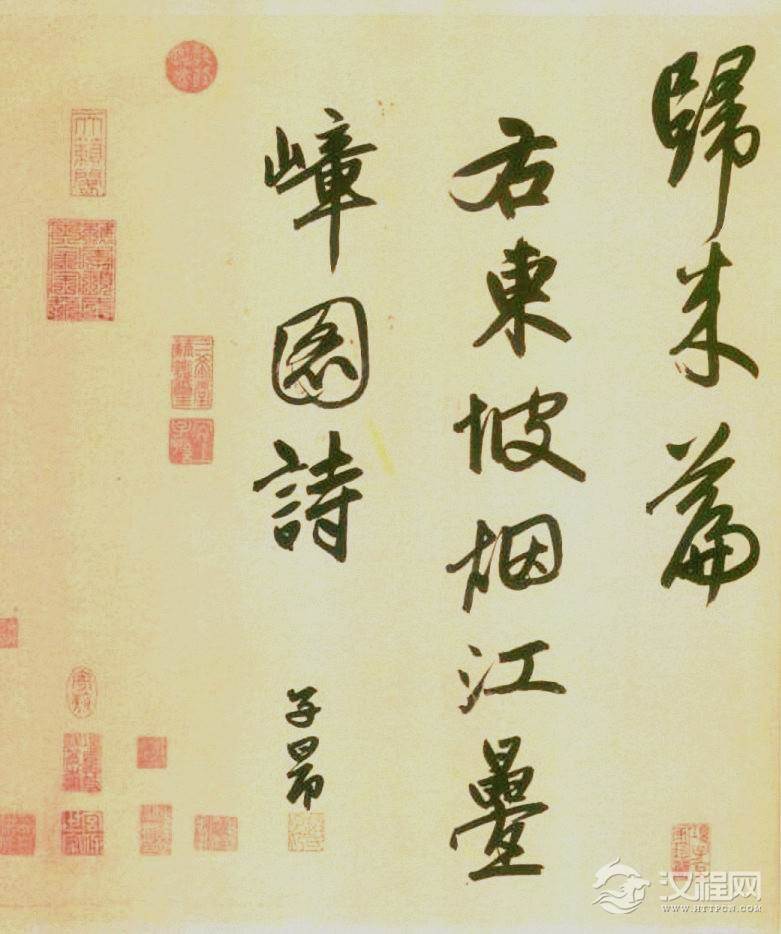 歸来篇
右東坡烟江疊
嶂圖詩
子昂
天籟閣
汉程网
WWW.HTTPCN.COM